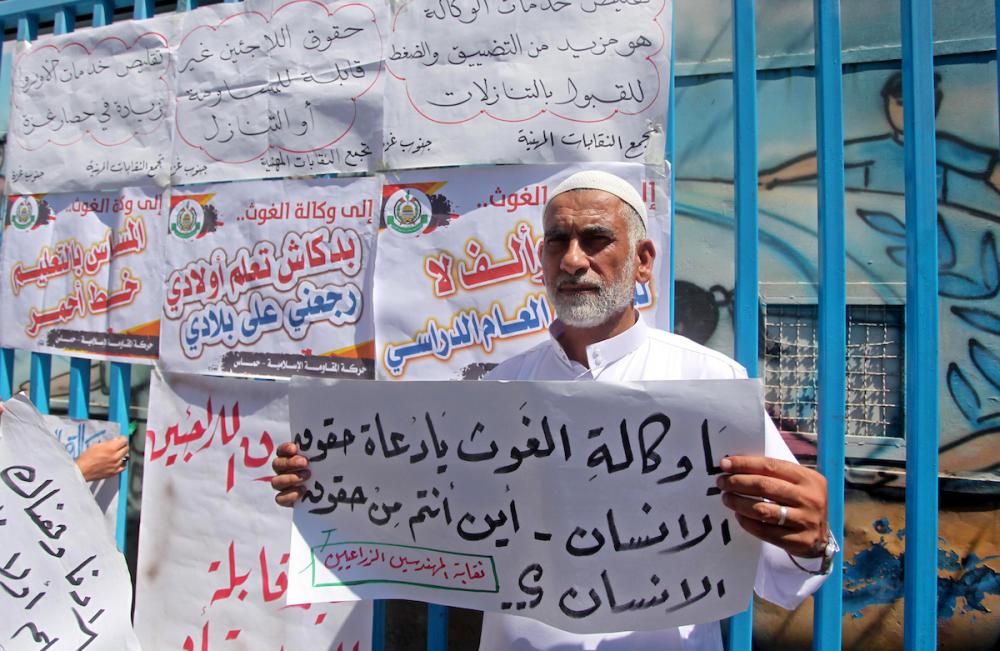 تقليص خدمات الأونروا
زيادة في حصار غزة
تجمع النقابات المهنية جنوب غزة
حقوق اللاجئين غير
قابلة للمساومة
أو التنازل
تجمع النقابات المهنية جنوب غزة
تقليص خدمات الوكالة
هو مزيد من التضييق والضغط
للقبول بالتنازلات
تجمع النقابات المهنية جنوب غزة
إلى وكالة الغوث..
المساس بالتعليم
خط أحمر
حركة المقاومة الإسلامية - حماس
إلى وكالة الغوث..
بدكاش تعلم أولادي
رجعني على بلادي
حركة المقاومة الإسلامية - حماس
إلى
الغوث..
وألف لا
العام الدراسي
يا وكالة الغوث يا دعاة حقوق
الانسان - أين أنتم من حقوق
الانسان ؟
نقابة المهندسين الزراعيين
اللاجئين
قابلة